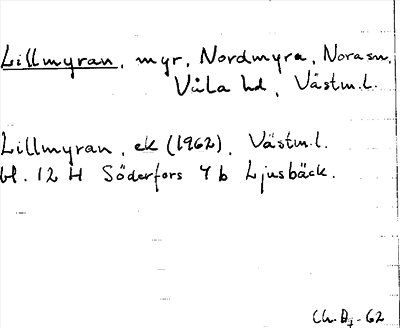 Lillmyran, myr, Nordmyra, Nora sn,
Våla hd, Västm.l.
Lillmyran, ek (1962), Västm.l.
bl. 12 H Söderfors 7 b Ljusbäck.